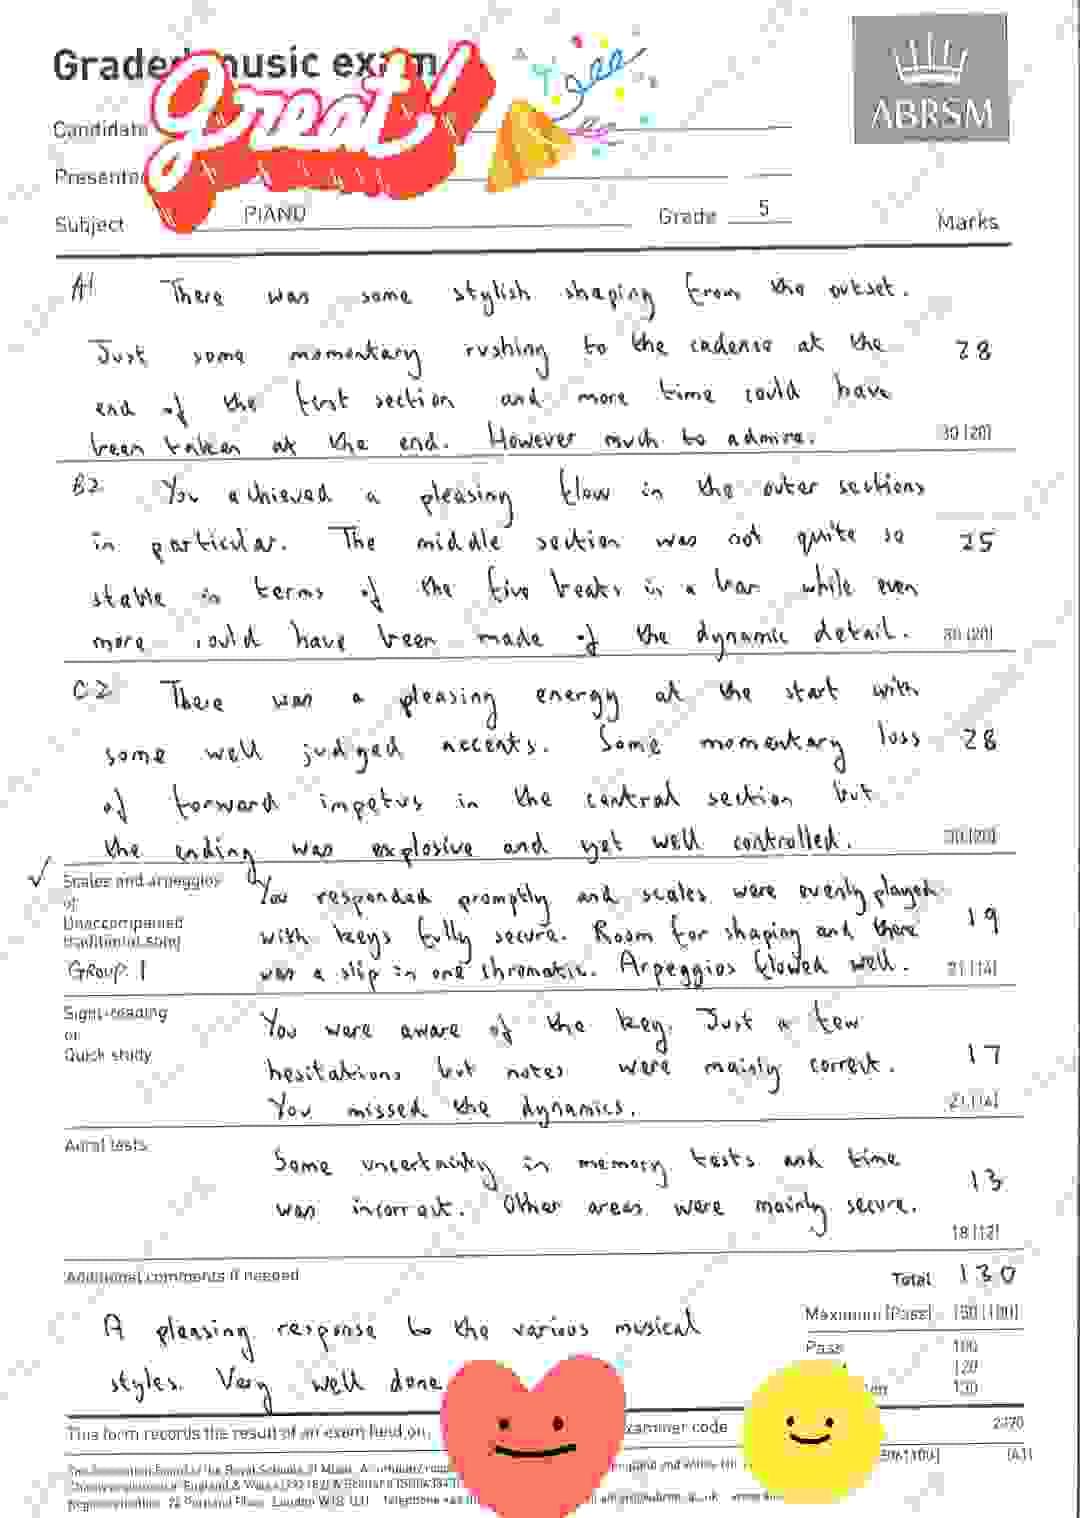 Graded music exam
Great!
ABRSM
Candidate
Presenter
Subject PIANO Grade 5 Marks
A1 There was some stylish shaping from the outset.
Just some momentary rushing to the cadence at the 28
end of the first section and more time could have
been taken at the end. However much to admire. 30 (20)
B2 You achieved a pleasing flow in the outer sections
in particular. The middle section was not quite so 25
stable in terms of the five beats in a bar while even
more could have been made of the dynamic detail. 30 (20)
C2 There was a pleasing energy at the start with
some well judged accents. Some momentary loss 28
of forward impetus in the central section but
the ending was explosive and yet well controlled. 30 (20)
✓ Scales and arpeggios You responded promptly and scales were evenly played
or
Unaccompanied with keys fully secure. Room for shaping and there 19
traditional song
GROUP 1 was a slip in one chromatic. Arpeggios flowed well. 21 (14)
Sight-reading You were aware of the key. Just a few
or
Quick study hesitations but notes were mainly correct. 17
You missed the dynamics. 21 (14)
Aural tests Some uncertainty in memory tests and time
was incorrect. Other areas were mainly secure. 13
18 (12)
Additional comments if needed Total 130
A pleasing response to the various musical Maximum (Pass) 150 (100)
Pass 100
styles. Very well done 120
130
This form records the result of an exam held on examiner code